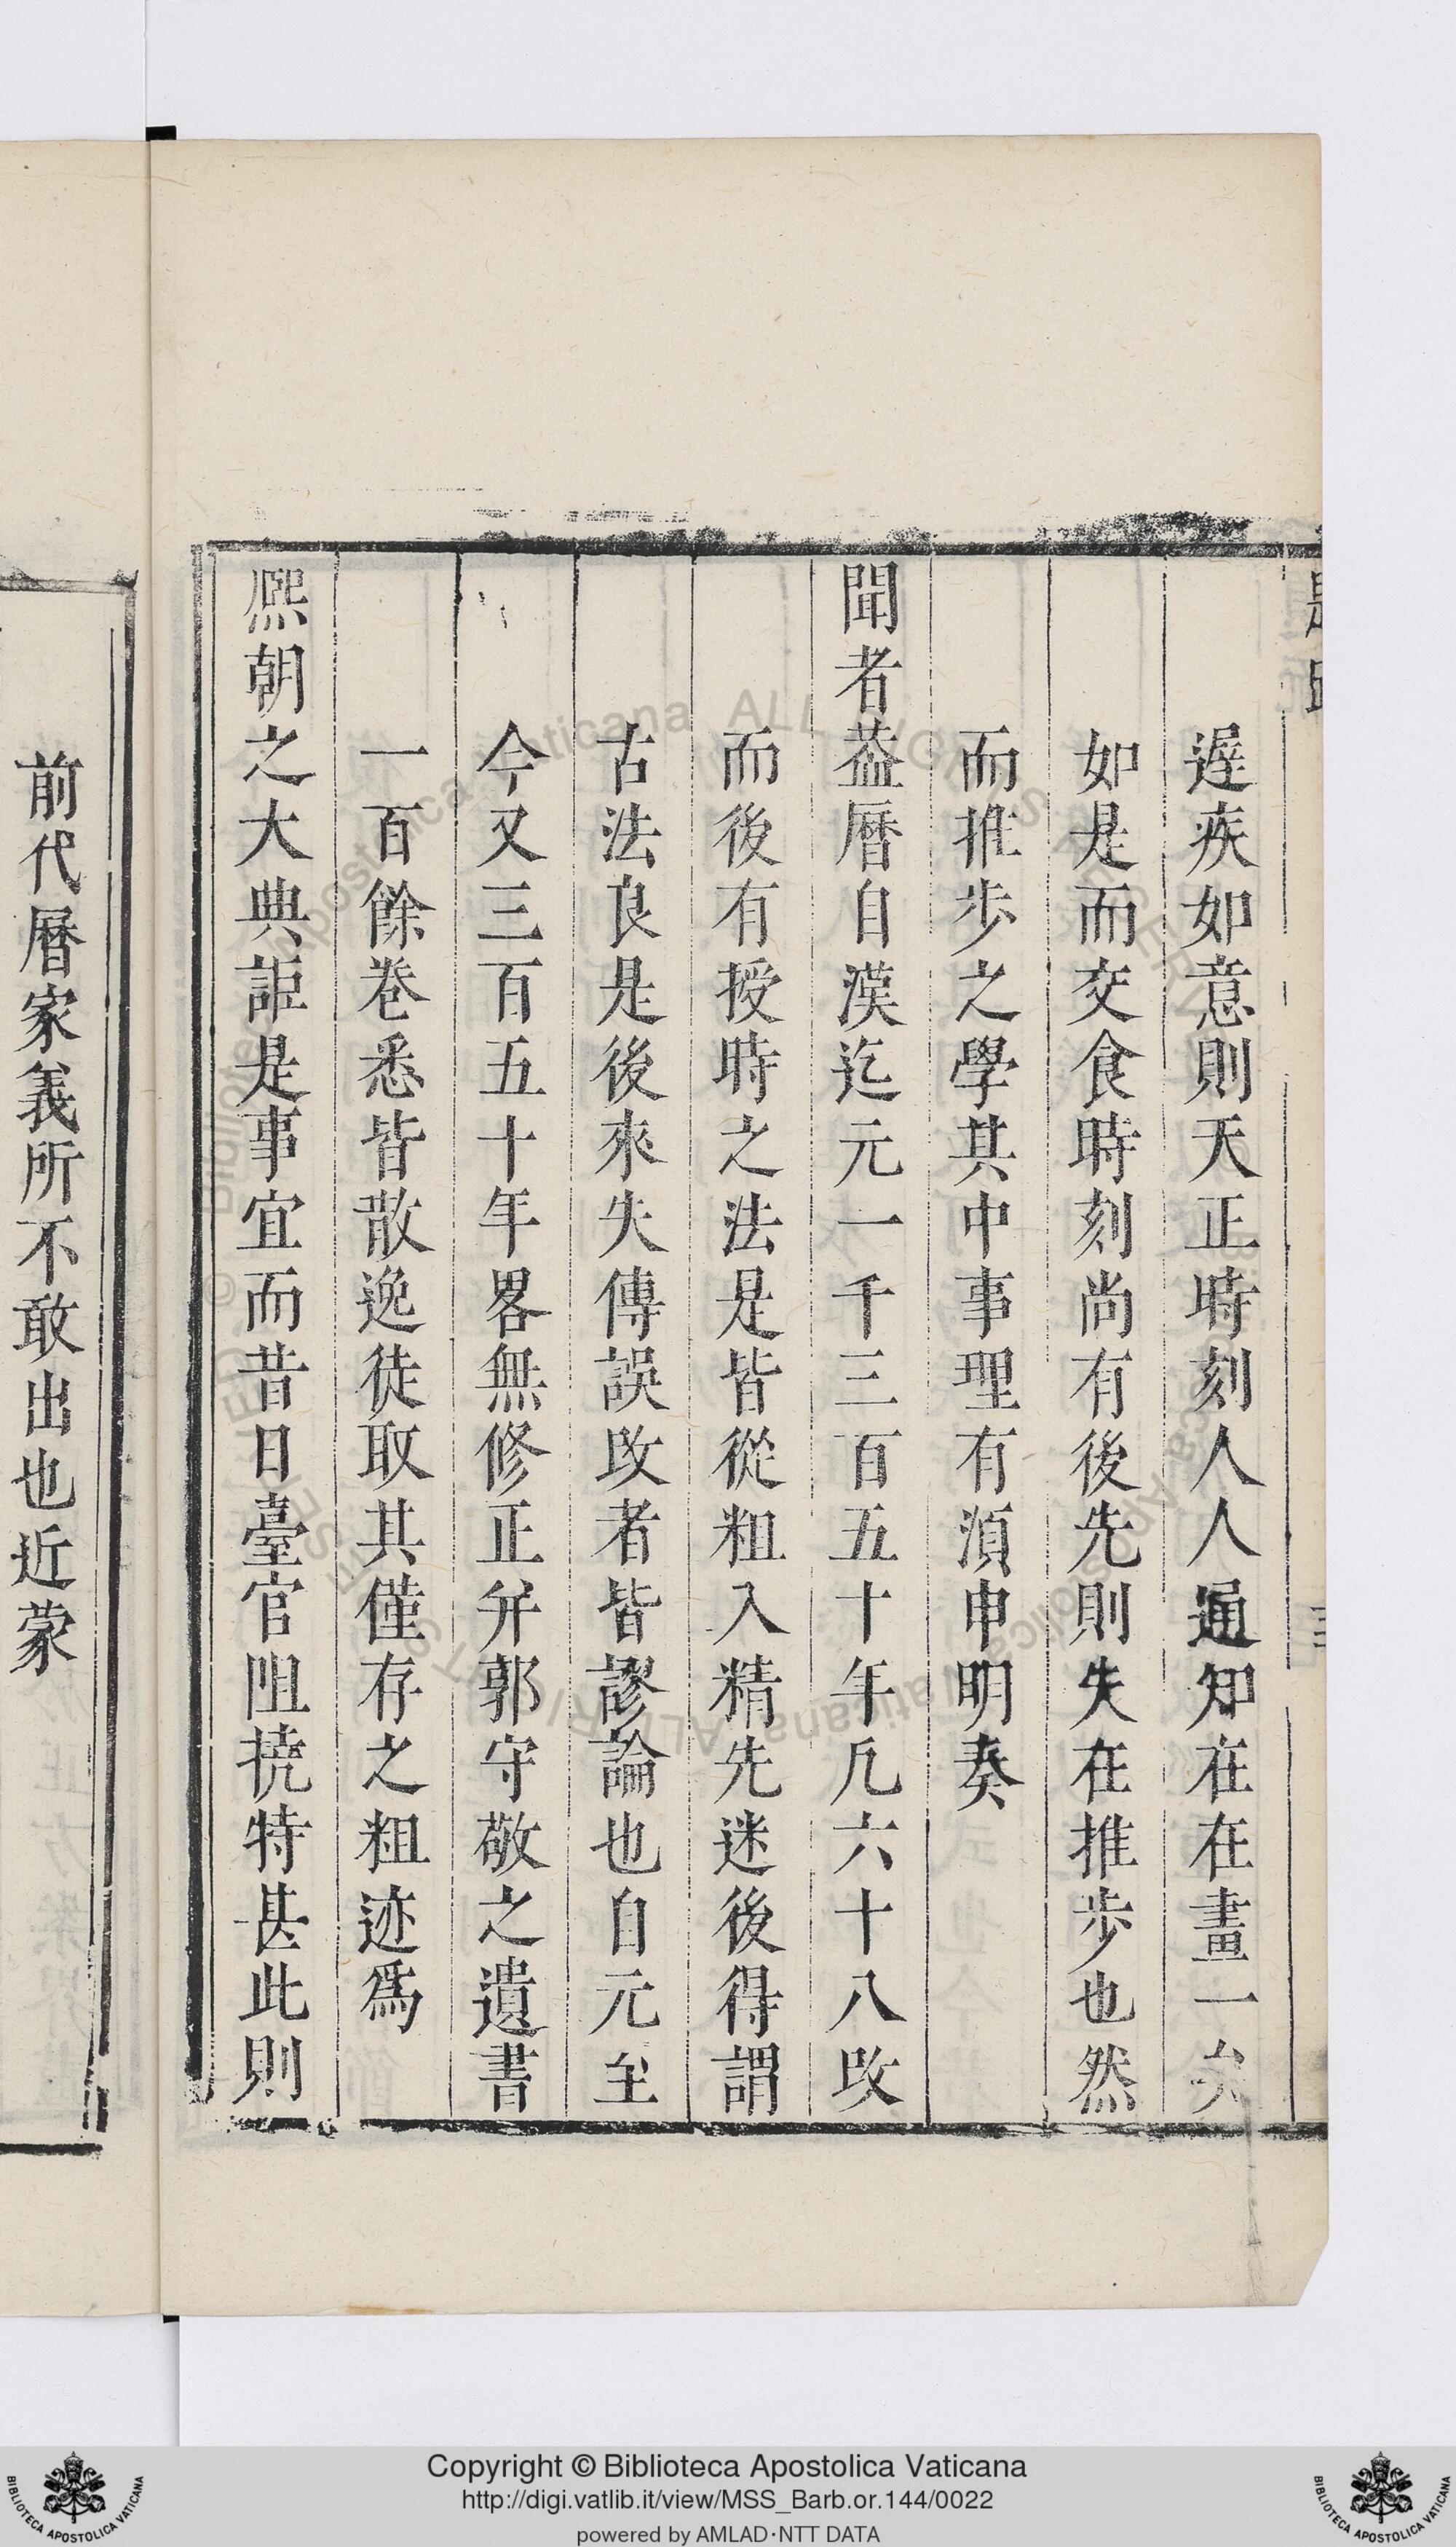 遲疾如意則天正時刻人人通知在在畫一矣
如是而交食時刻尚有後先則失在推步也然
而推步之學其中事理有湏申明奏
聞者葢曆自漢迄元一千三百五十年凡六十八改
而後有授時之法是皆從粗入精先迷後得謂
古法良是後來失傳誤改者皆謬論也自元至
今又三百五十年畧無修正并郭守敬之遺書
一百餘巻悉皆散逸徒取其僅存之粗迹爲
熈朝之大典詎是事宜而昔日臺官阻撓特甚此則
前代曆家義所不敢出也近蒙
Copyright © Biblioteca Apostolica Vaticana
http://digi.vatlib.it/view/MSS_Barb.or.144/0022
powered by AMLAD·NTT DATA
BIBLIOTECA APOSTOLICA VATICANA
BIBLIOTECA APOSTOLICA VATICANA